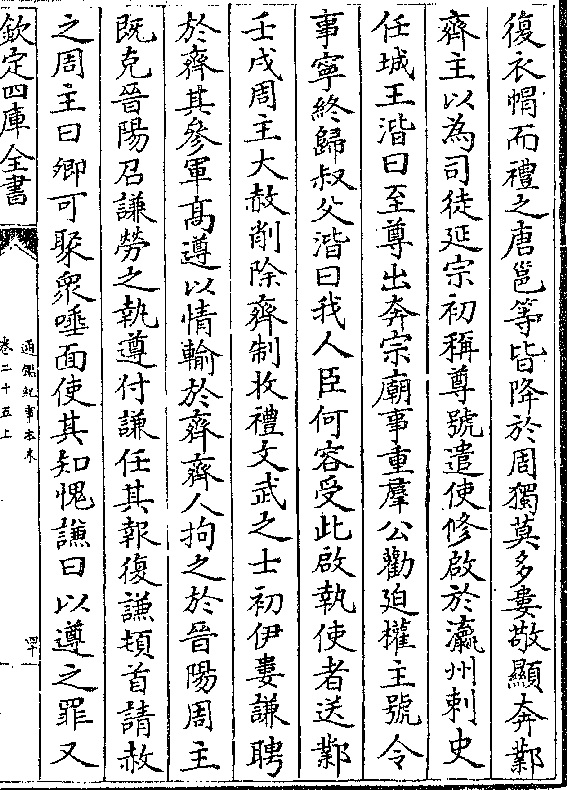 復衣帽而禮之唐邕等皆降於周獨莫多婁敬顯奔鄴
齊主以為司徒延宗初稱尊號遣使修啟於瀛州刺史
任城王湝曰至尊出奔宗廟事重羣公勸迫權主號令
事寧終歸叔父湝曰我人臣何容受此啟執使者送鄴
壬戌周主大赦削除齊制收禮文武之士初伊婁謙聘
於齊其參軍高遵以情輸於齊齊人拘之於晉陽周主
既克晉陽召謙勞之執遵付謙任其報復謙頓首請赦
之周主曰卿可聚衆唾面使其知愧謙曰以遵之罪又
欽定四庫全書
通鑑紀事本末
卷二十五上
四十